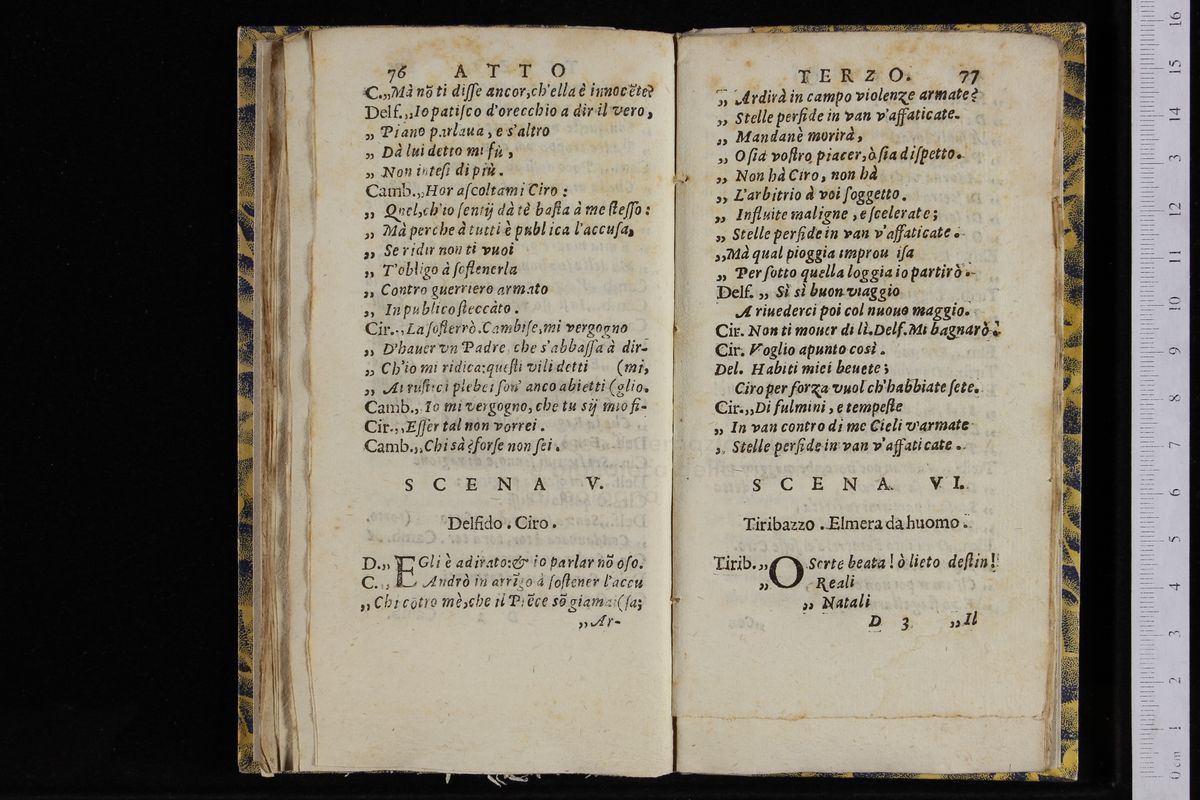 76 ATTO
C.,,Mà nõ ti disse ancor,ch'ella è innocẽte?
Delf.,,Io patisco d'orecchio a dir il vero,
,, Piano parlaua, e s'altro
,, Dà lui detto mi fù,
,, Non intesi di più.
Camb.,,Hor ascoltami Ciro:
,, Quel,ch'io sentij dà tè basta à me stesso:
,, Mà perche à tutti è publica l'accusa,
,, Se ridir non ti vuoi
,, T'obligo à sostenerla
,, Contro guerriero armato
,, In publico steccàto.
Cir.,,La sosterrò.Cambise,mi vergogno
,, D'hauer vn Padre che s'abbassa à dir-
,, Ch'io mi ridica:questi vili detti (mi,
,, Ai rustici plebei son' anco abietti (glio.
Camb.,,Io mi vergogno, che tu sij mio fi-
Cir.,,Esser tal non vorrei.
Camb.,,Chi sà? forse non sei.
SCENA V.
Delfido. Ciro.
D.,, EGli è adirato:& io parlar nõ oso.
C.,, Andrò in arrigo à sostener l'accu
,, Chi cõtro mè,che il Prẽce sõ giamai (sa;
,,Ar-
TERZO. 77
,, Ardirà in campo violenze armate?
,, Stelle perfide in van v'affaticate.
,, Mandanè morirà,
,, O sia vostro piacer,ò sia dispetto.
,, Non hà Ciro, non hà
,, L'arbitrio à voi soggetto.
,, Influite maligne, e scelerate;
,, Stelle perfide in van v'affaticate.
,,Mà qual pioggia improu isa
,, Per sotto quella loggia io partirò.
Delf. ,, Sì sì buon viaggio
A riuederci poi col nuouo maggio.
Cir. Non ti mouer di lì.Delf.Mi bagnarò?
Cir. Voglio apunto così.
Del. Habiti miei beuete;
Ciro per forza vuol ch'habbiate sete.
Cir.,,Di fulmini, e tempeste
,, In van contro di me Cieli v'armate
,, Stelle perfide in van v'affaticate.
SCENA VI.
Tiribazzo. Elmera da huomo.
Tirib.,, O Sorte beata! ò lieto destin!
,, Reali
,, Natali
D 3 ,,Il